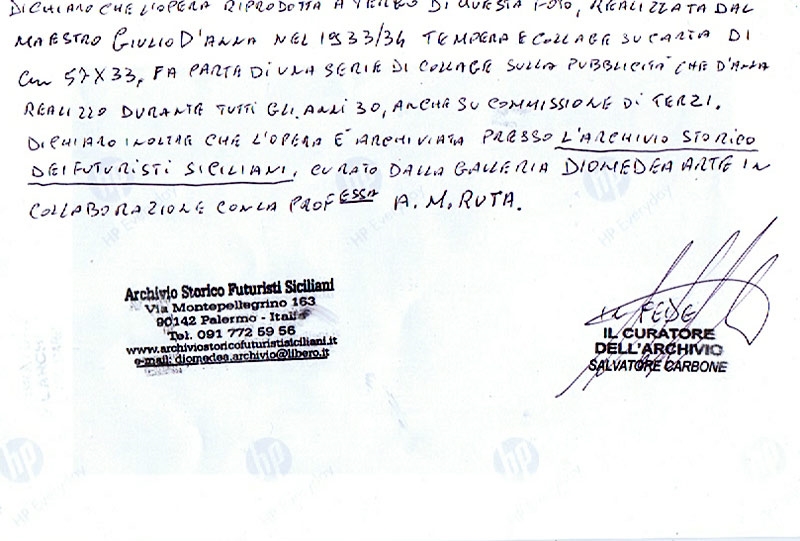 DICHIARO CHE L'OPERA RIPRODOTTA A TERGO DI QUESTA FOTO, REALIZZATA DAL
MAESTRO GIULIO D'ANNA NEL 1933/34 TEMPERA E COLLAGE SU CARTA DI
Cm 57X33, FA PARTE DI UNA SERIE DI COLLAGE SULLA PUBBLICITA' CHE D'ANNA
REALIZZO DURANTE TUTTI GLI ANNI 30, ANCHE SU COMMISSIONE DI TERZI.
DICHIARO INOLTRE CHE L'OPERA E' ARCHIVIATA PRESSO L'ARCHIVIO STORICO
DEI FUTURISTI SICILIANI, CURATO DALLA GALLERIA DIOMEDEA ARTE IN
COLLABORAZIONE CON LA PROF ESSA A. M. RUTA.
Archivio Storico Futuristi Siciliani
Via Montepellegrino 163
90142 Palermo - Italia
Tel. 091 772 59 56
www.archiviostoricofuturistisiciliani.it
e-mail: diomedea.archivio@libero.it
IN FEDE
IL CURATORE
DELL'ARCHIVIO
SALVATORE CARBONE
hp
HP Everyday
hp
HP Everyday
hp
HP Everyday
hp
hp
hp